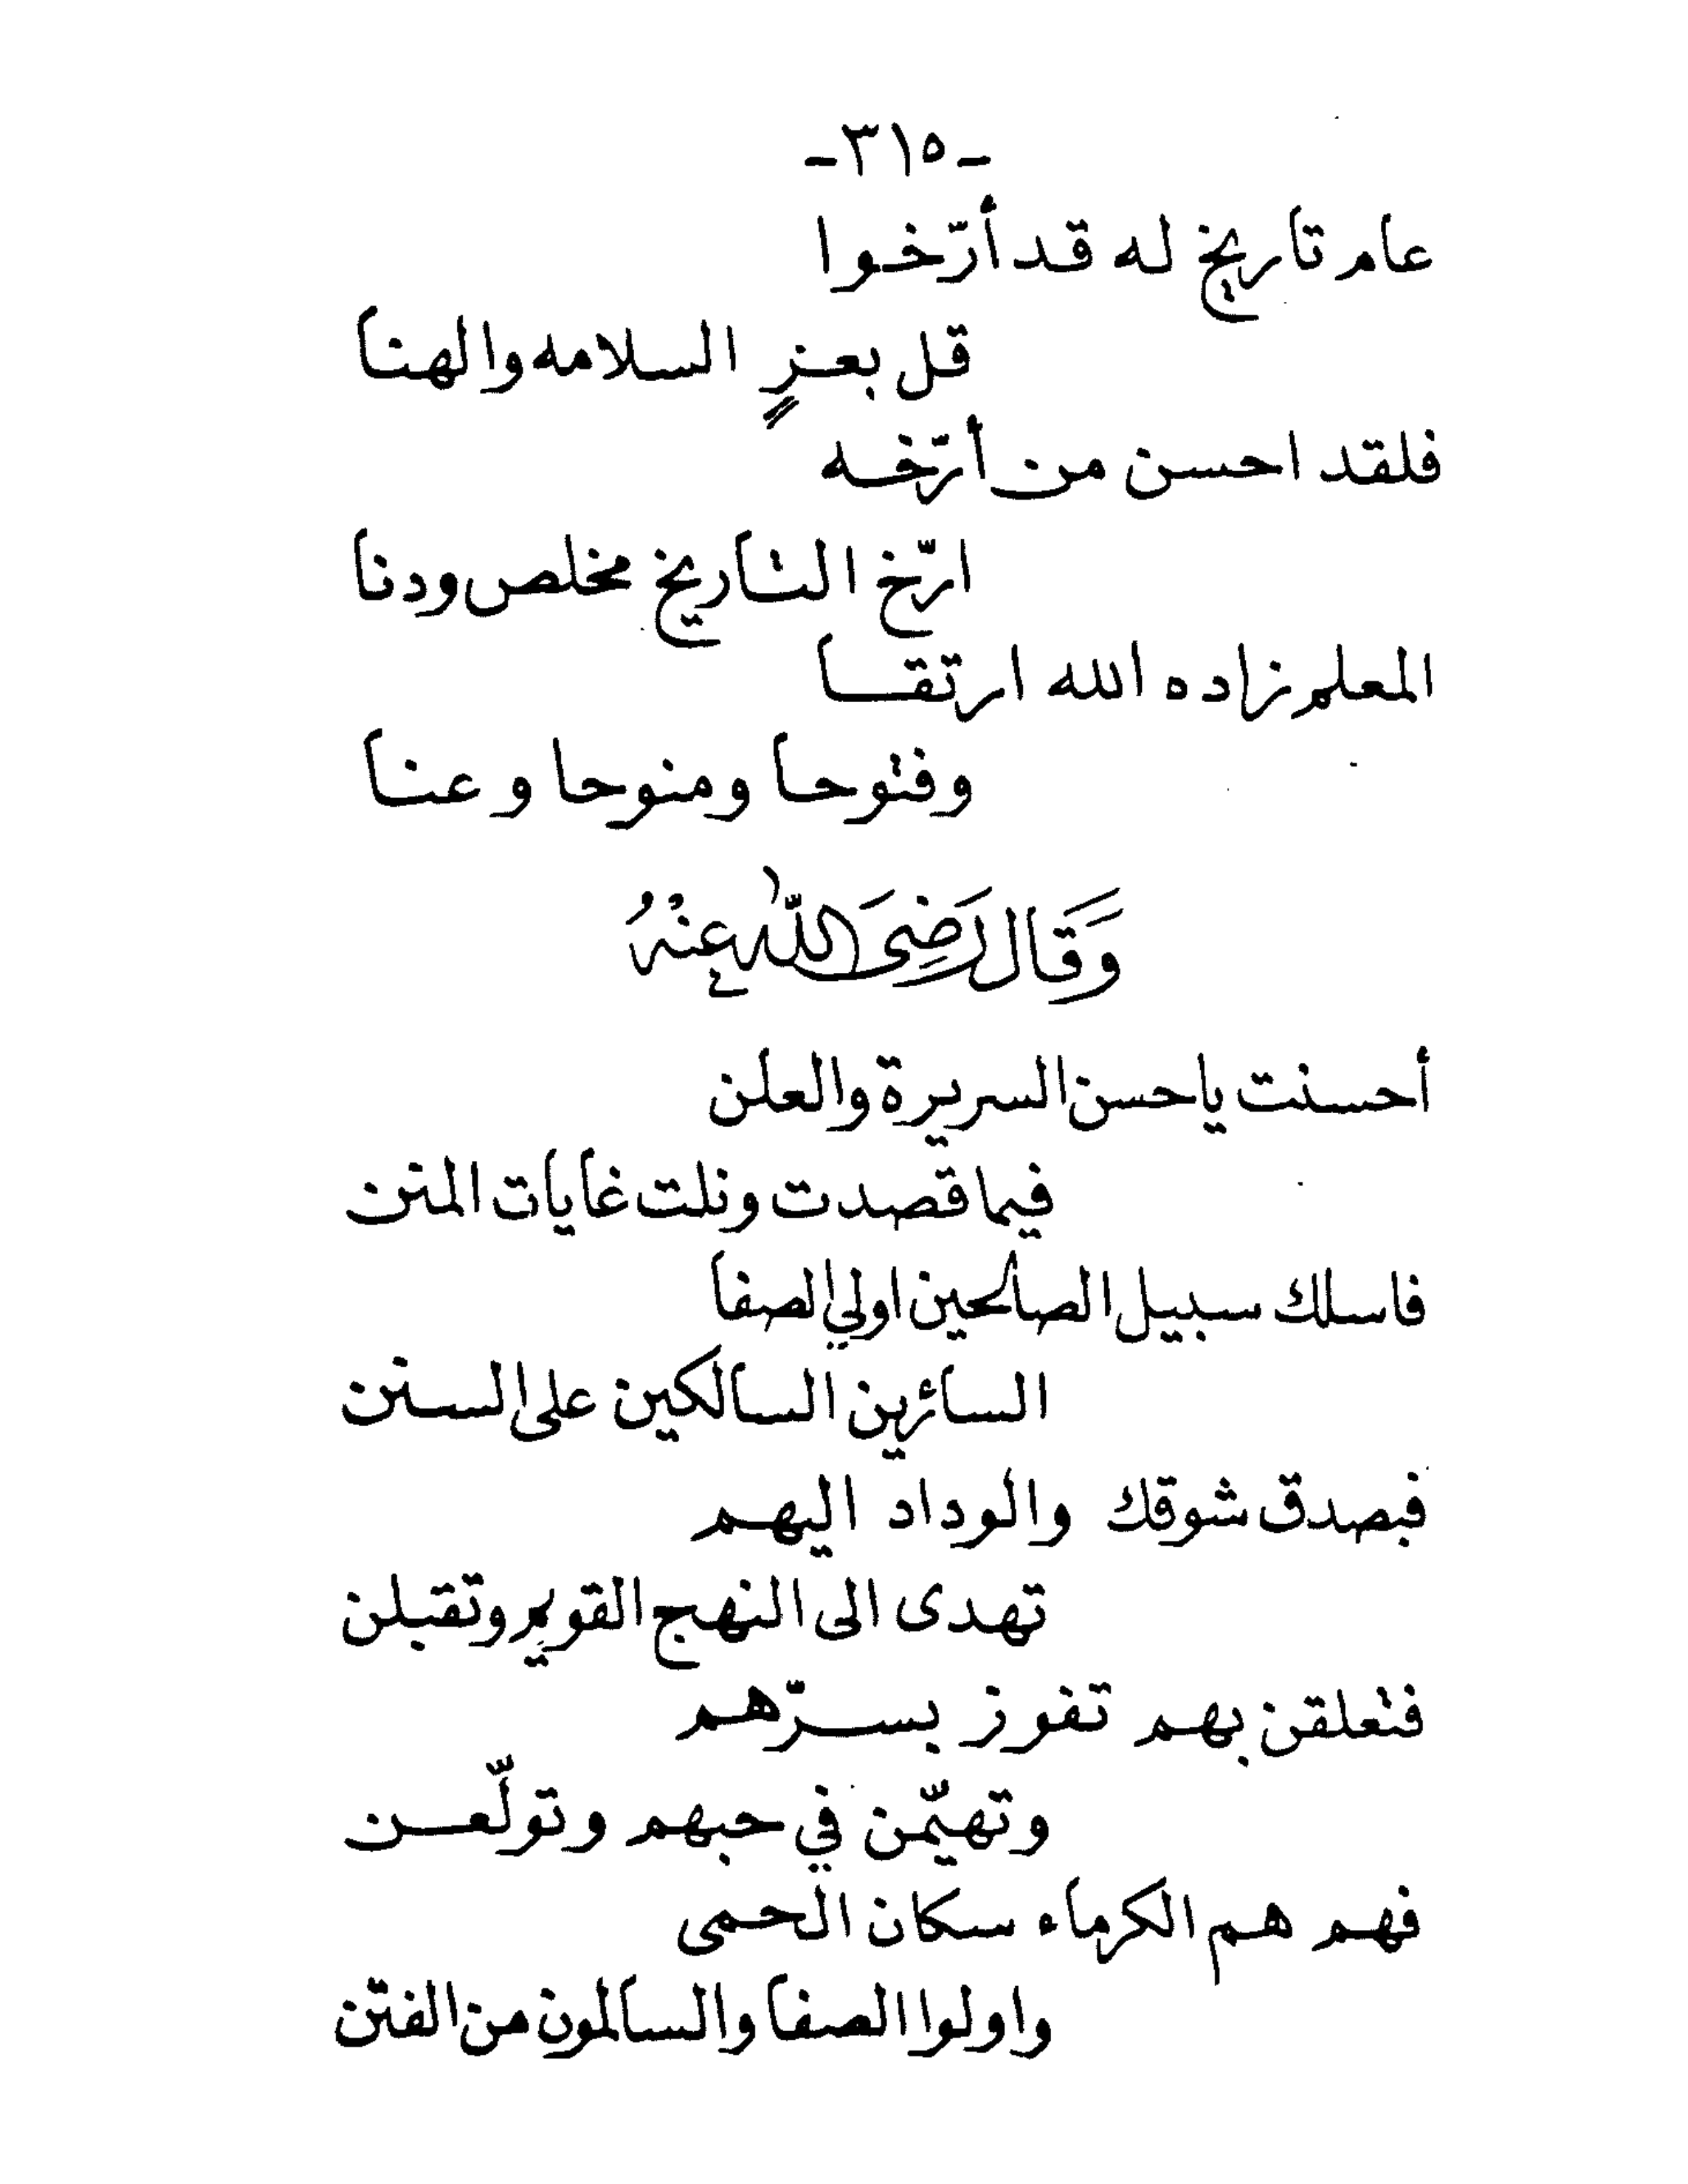 -٣١٥-
عام تاريخ له قد أرّخوا
قل بعزٍ السلامه والهنا
فلقد احسن من أرّخه
ارّخ التاريخ مخلص ودنا
المعلم زاده الله ارتقا
وفتوحا ومنوحا وعنا
وَقَال رَضِىَ اللّٰه عِنْهُ
أحسنت ياحسن السريرة والعلن
فيما قصدت ونلت غايات المنن
فاسلك سبيل الصالحين اولي الصفا
السائرين السالكين على السنن
فبصدق شوقك والوداد اليهم
تهدى الى النهج القويم وتقبلن
فتعلقن بهم تفوز بسرّهم
وتهيّمن في حبهم وتولّعن
فهم هم الكرماء سكان الحمى
واولوا الصفا والسالمون من الفتن